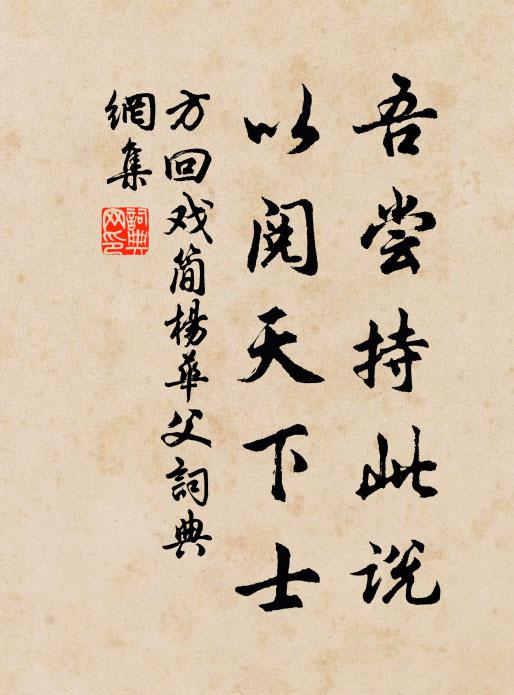 吾尝持此说
以阅天下士
方回戏简杨华父詞典
網集
詞典
网印